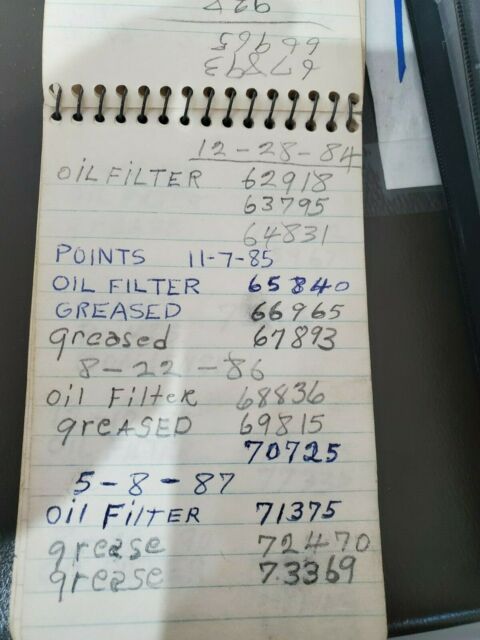 927
66965
67893
12-28-84
OIL FILTER 62918
63795
64831
POINTS 11-7-85
OIL FILTER 65840
GREASED 66965
greased 67893
8-22-86
oil Filter 68836
greASED 69815
70725
5-8-87
OIL FILTER 71375
grease 72470
grease 73369